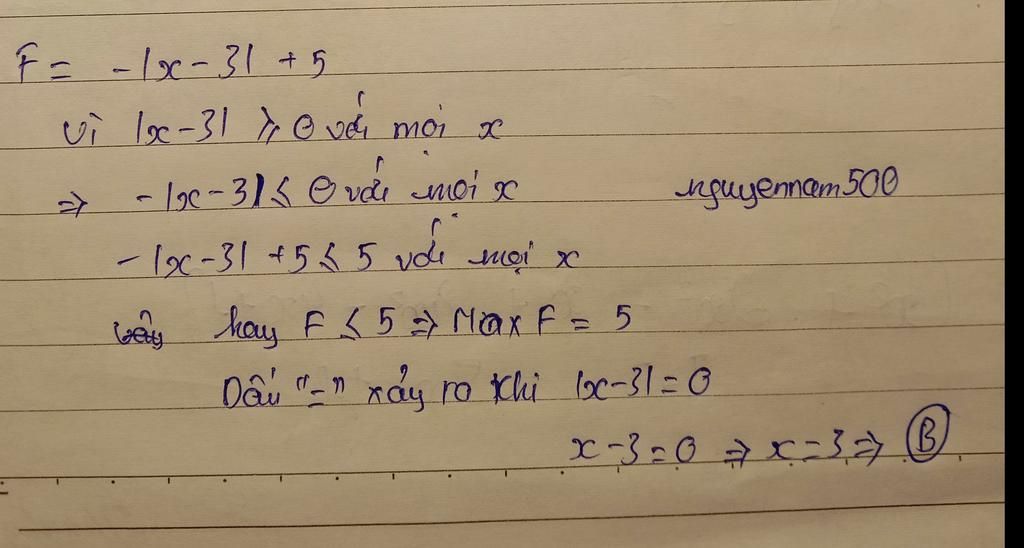 F = -|x-3| + 5
Vì |x-3| ≥ 0 với mọi x
⇒ -|x-3| ≤ 0 với mọi x
nguyennam500
-|x-3| + 5 ≤ 5 với mọi x
vậy hay F ≤ 5 ⇒ Max F = 5
Dấu "=" xảy ra khi |x-3| = 0
x-3 = 0 ⇒ x = 3 ⇒ B